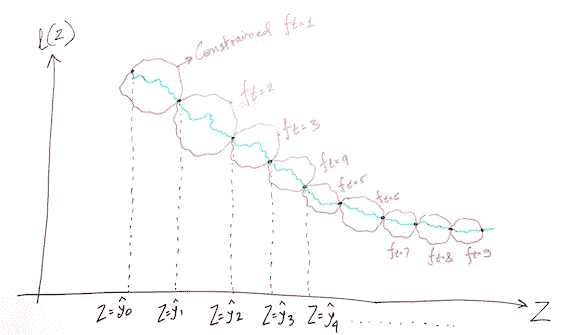 ℓ(Z)
Constrained ft=1
ft=2
ft=3
ft=4
ft=5
ft=6
ft=7
ft=8
ft=9
Z=ŷ0 Z=ŷ1 Z=ŷ2 Z=ŷ3 Z=ŷ4 ........... Z